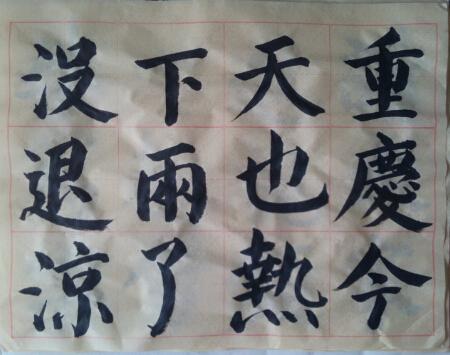 重慶今
天也熱
下雨了
没退涼